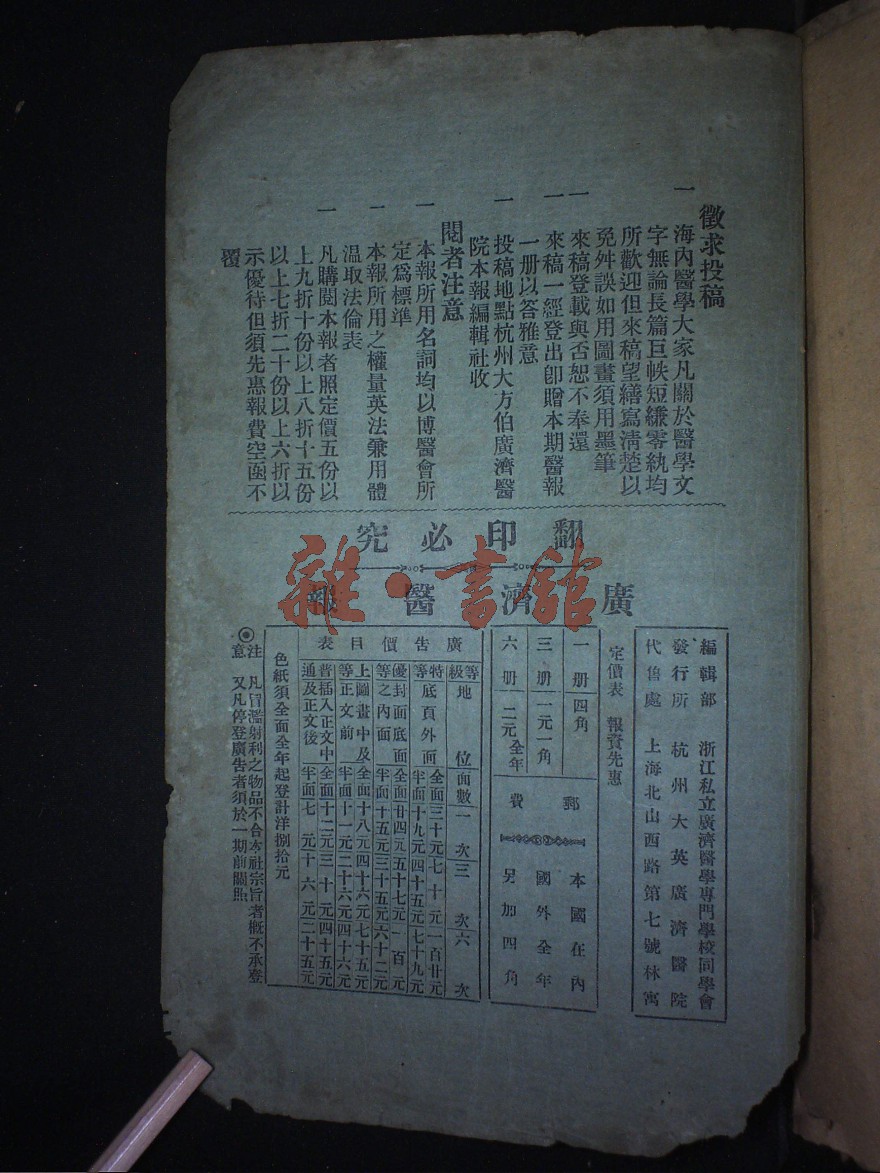 徵求投稿
一 海內醫學大家凡關於醫學文
字無論長篇巨帙短縑零紈均
所歡迎但來稿望繕寫清楚以
免舛誤如用圖畫須用墨筆
一 來稿登載與否恕不奉還
一 來稿一經登出卽贈本期醫報
一册以答雅意
一 投稿地點杭州大方伯廣濟醫
院本報編輯社收
閱者注意
一 本報所用名詞均以博醫會所
定爲標準
一 本報所用之權量英法兼用體
温取法倫表
一 凡購閱本報者照定價五份以
上九折十份以上八折十五份
以上七折二十份以上六折以
示優待但須先惠報費空函不
覆
翻印必究
廣濟醫報
雜·書館
編輯部 浙江私立廣濟醫學專門學校同學會
發行所 杭州大英廣濟醫院
代售處 上海北山西路第七號林寓
定價表 報費先惠
一册 四角
三册 一元一角
六册 二元全年
郵費
本國在內
國外全年
另加四角
廣告價目表
等級 地位 面數 一次 三次 六次
特等 底頁外面 全面 三十元 七十元 一百廿元
半面 十九元 四十五元 七十九元
優等 封面底面之內面 全面 廿四元 五十七元 一百元
半面 十五元 三十五元 六十二元
上等 圖畫中及正文前 全面 十八元 四十六元 七十五元
半面 十一元 二十六元 四十六元
普通 插入正文中及正文後 全面 十二元 三十元 四十五元
半面 七元 十六元 二十五元
色紙須全面全年起登計洋捌拾元
◉注意 凡冒濫射利之物品不合本社宗旨者概不承登
又凡停登廣告者須於一期前關照